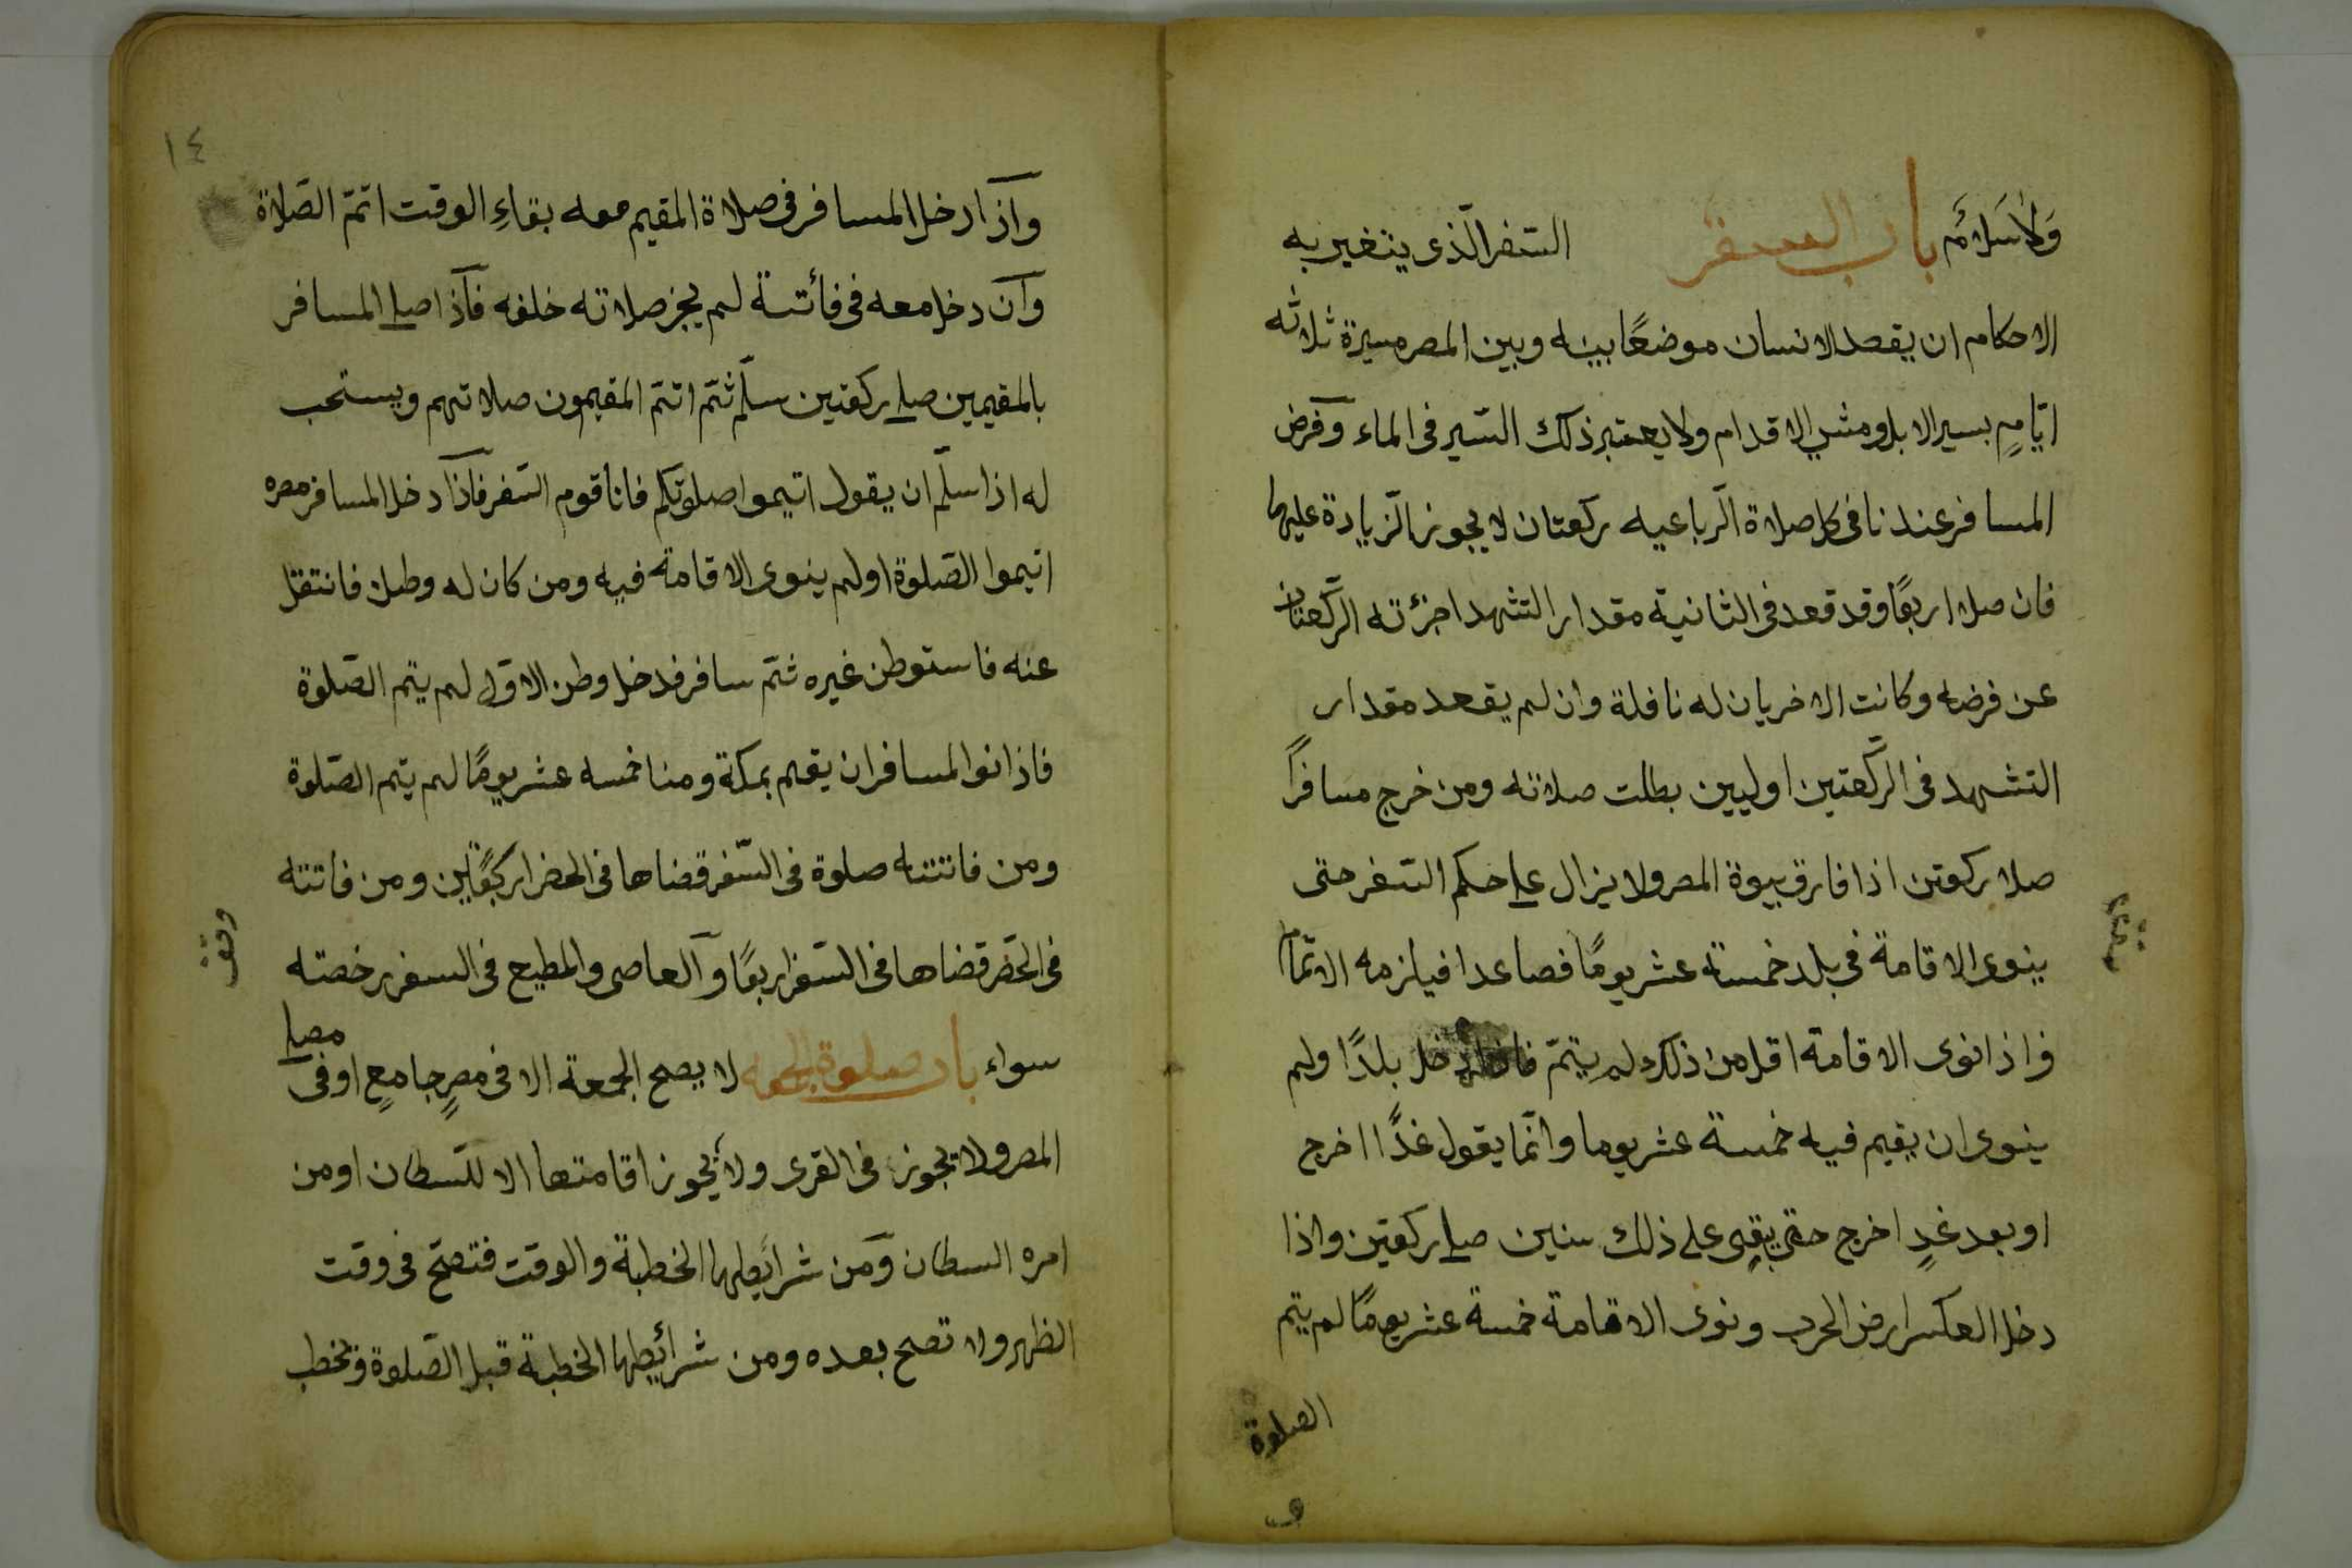 ولا سلام باب السفر السّفر الّذى يتغير به
الاحكام ان يقصد الانسان موضعًا بينه وبين المصر مسيرة ثلاثه
ايّامٍ بسير الابل ومشي الاقدام ولا يعتبر ذلك السّير فى الماء وفرض
المسافر عندنا فى كل صلاة الرّباعيه ركعتان لا يجوز الزّيادة عليهما
فان صلا اربعًا وقد قعد فى الثانية مقدار التشهد اجزئته الرّكعتان
عن فرضه وكانت الاخريان له نافلة وان لم يقعد مقدار
التشهد فى الرّكعتين اوليين بطلت صلاته ومن خرج مسافرًا
صلا ركعتن اذا فارق بيوة المصر ولا يزال على حكم السّفر حتى
ينوى الاقامة فى بلد خمسة عشر يومًا فصاعدا فيلزمه الاتمام
واذا نوى الاقامة اقل من ذلك لم يتمّ دخل بلدًا ولم
ينوى ان يقيم فيه خمسة عشر يوما وانّما يقول غدًا اخرج
او بعد غدٍ اخرج حتى بقى على ذلك سنين صلى ركعتين واذا
دخل العكسر ارض الحرب ونوى الاقامة خمسة عشر يومًا لم يتم
الصلوة
١٤
واذا دخل المسافر فى صلاة المقيم معه بقاءِ الوقت اتمّ الصّلاة
وان دخل معه فى فائتة لم يجز صلاته خلفه فاذا صلى المسافر
بالمقيمين صلى ركعتين سلّم ثمّ اتمّ المقيمون صلاتهم ويستحب
له اذا سلّم ان يقول اتيموا صلوتكم فانا قوم السّفر فاذا دخل المسافر مصره
اتيموا الصّلوة اولم ينوى الاقامة فيه ومن كان له وطن فانتقل
عنه فاستوطن غيره ثمّ سافر فدخل وطن الاوّل لم يتم الصّلوة
فاذا نوا المسافر ان يقيم بمكة ومنا خمسه عشر يومًا لم يتم الصّلوة
ومن فاتتته صلوة فى السّفر قضاها فى الحضر ركعتين ومن فاتته
فى الحَضر قضاها فى السّفر اربعًا والعاصى والمطيع فى السفر رخصته
سواء باب صلوة الجمعه لا يصح الجمعة الا فى مصرٍ جامعٍ او فى مصلى
المصر ولا تجوز فى القرى ولا يجوز اقامتها الا للسّطان او من
امره السطان ومن شرايطها الخطبة والوقت فتصحّ فى وقت
الظهر ولا تصح بعده ومن شرائيطها الخطبة قبل الصّلوة ويخطب
وقف